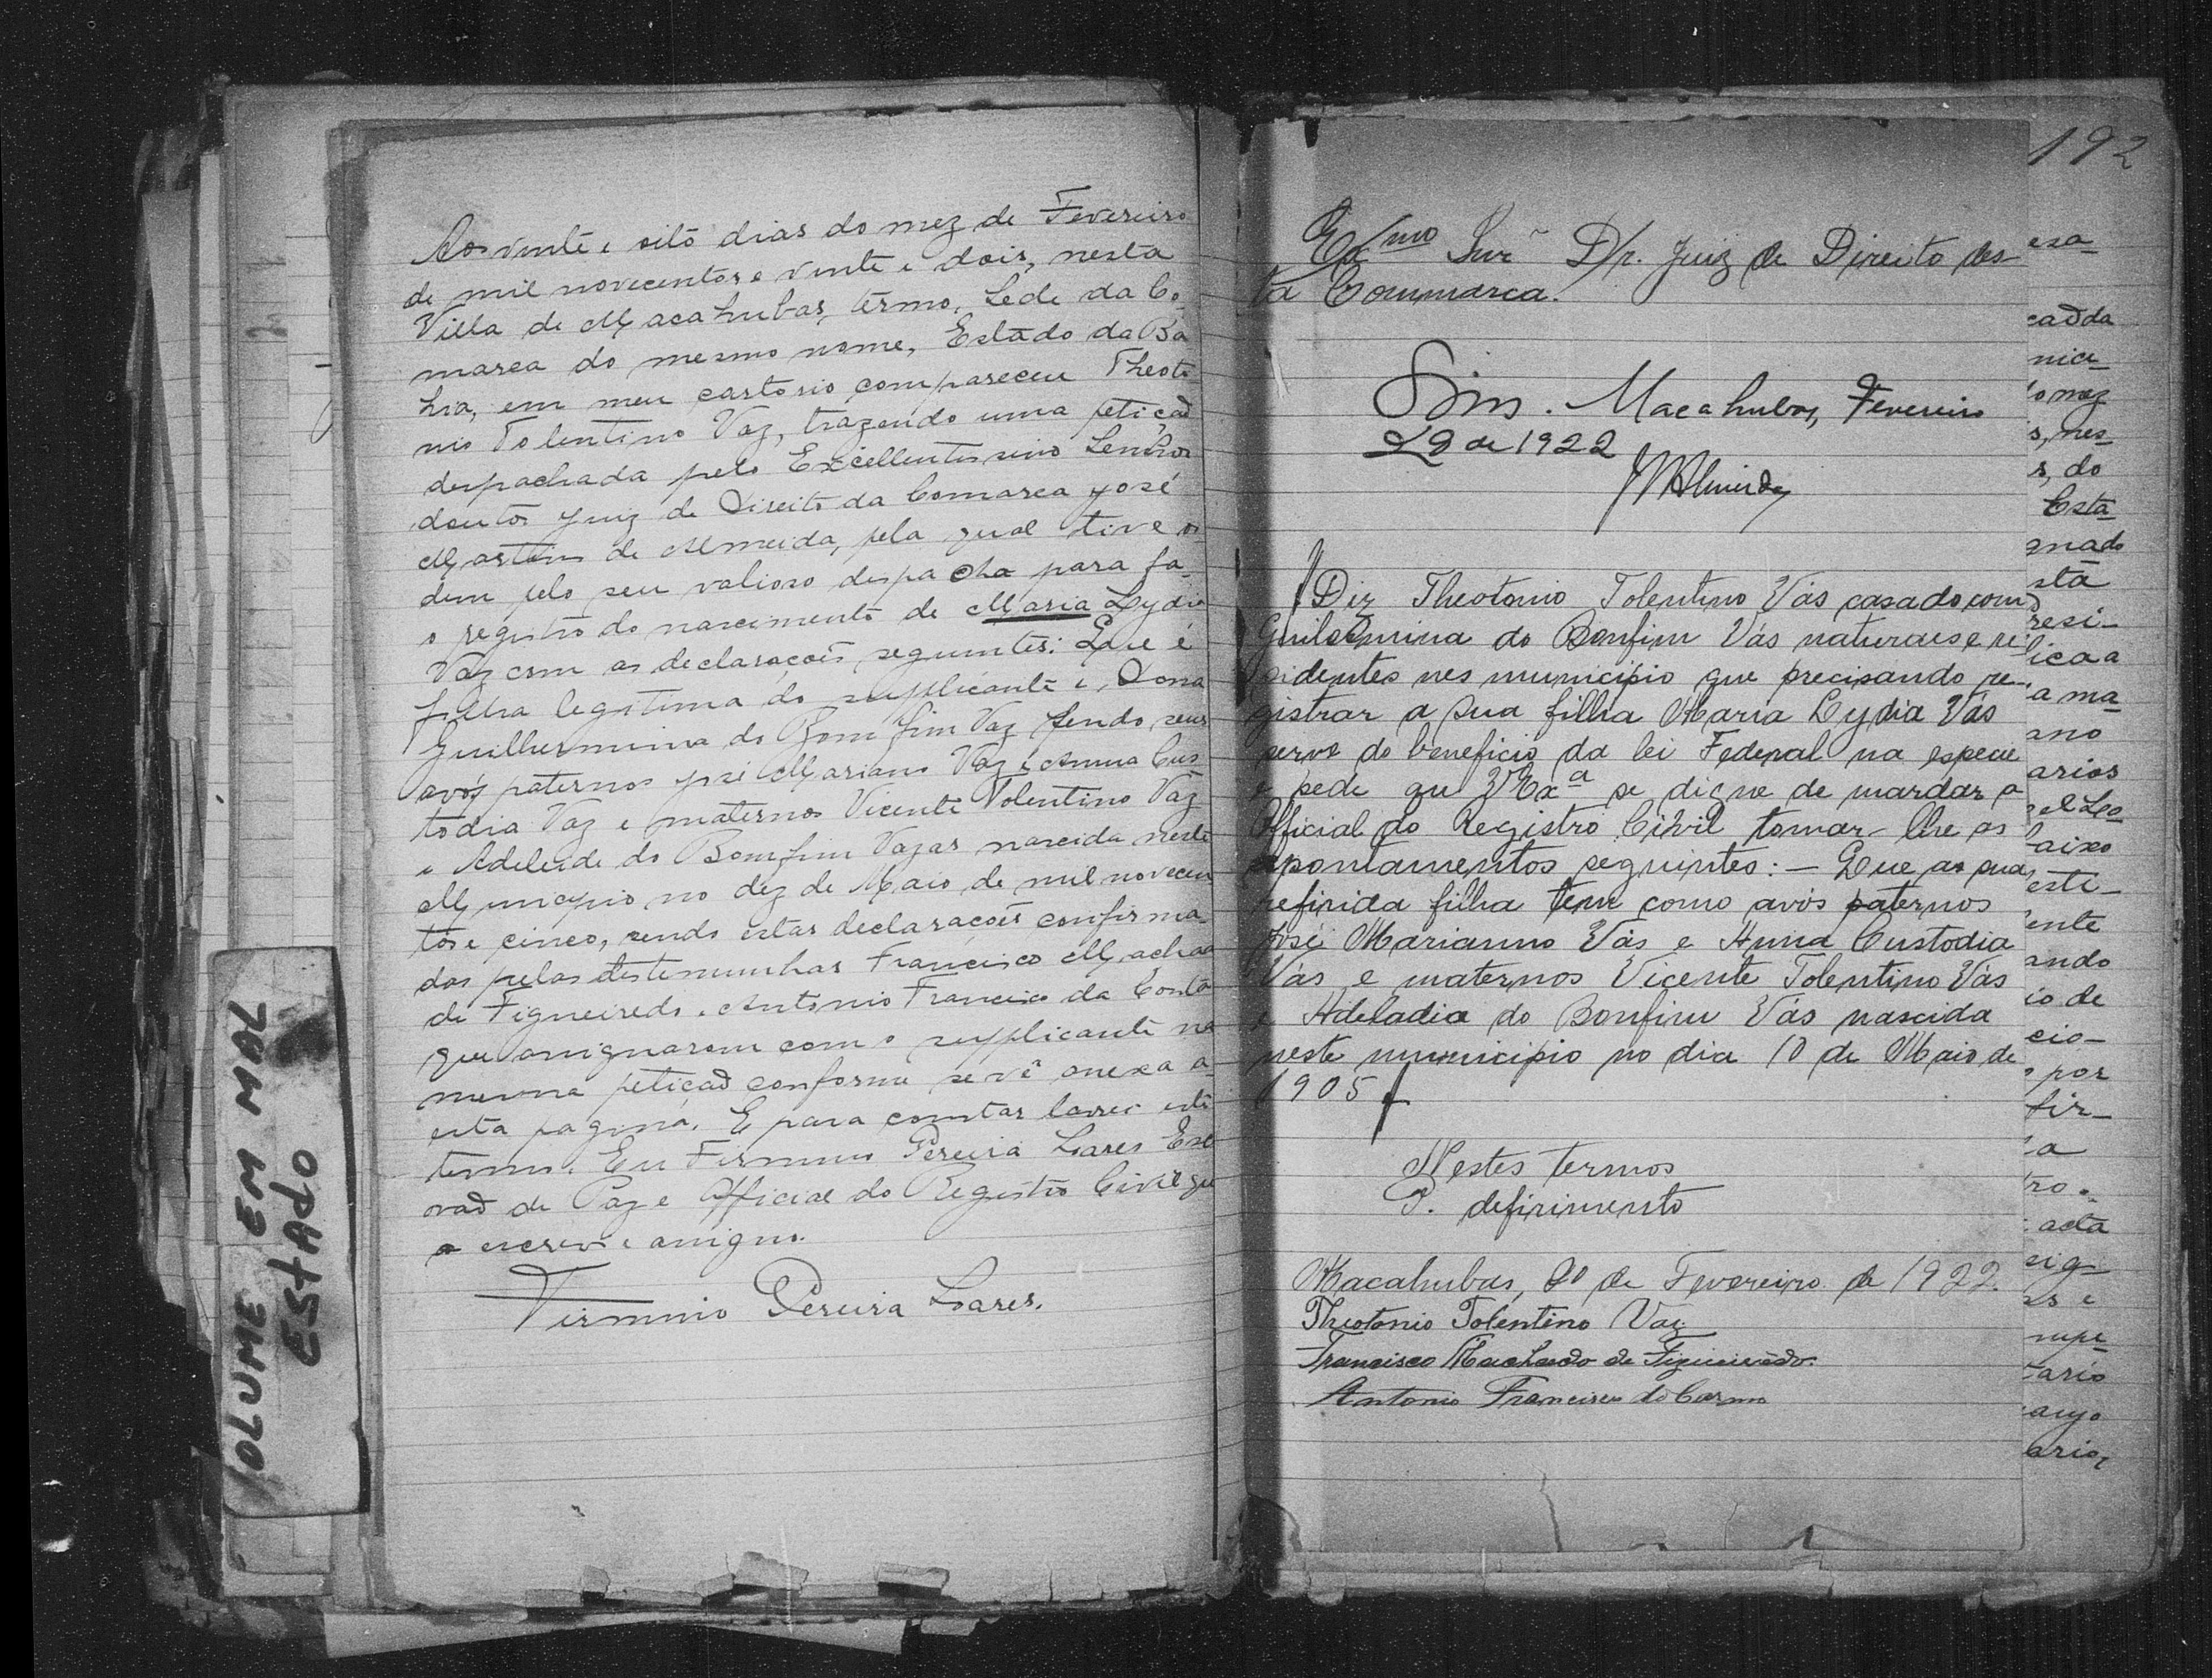 Aos vinte e oito dias do mez de Fevereiro
de mil novecentos e vinte e dois, nesta
Villa de Macahubas, termo, Sede da Co-
marca do mesmo nome, Estado da Ba
hia, em meu cartorio compareceu Theoto
nio Tolentino Vaz, trazendo uma petição
despachada pelo Excellentissimo Senhor
doutor Juiz de Direito da Comarca José
Martins de Almeida, pela qual tive
dem pelo seu valioso despacho para fa-
o registro do nascimento de Maria Lydia
Vaz com as declarações seguintes: Que é
filha legitima do supplicante e, Dona
Guilhermina do Bomfim Vaz sendo seus
avós paternos José Mariano Vaz e Anna Cus
todia Vaz e maternos Vicente Tolentino Vaz
e Adeleide do Bomfim Vaz nascida neste
Municipio no dez de Maio de mil novecen
tos e cinco, sendo estas declarações confirma
das pelas testemunhas Francisco Machado
de Figueiredo e Antonio Francisco da
que assignaram com o supplicante na
mesma petição conforme se vê anexa a
esta pagina. E para constar lavrei este
termo. Eu Firmino Pereira Lares Escr
ivão de Paz e Official do Registro Civil que
o escrevi e assigno.
Firmino Pereira Lares.
VOLUME EM MAL
ESTADO
192
Exmo Snr Dr. Juiz de Direito des-
ta Commarca.
Sim. Macahubas, Fevereiro
28 de 1922
JMAlmeida
Diz Theotonio Tolentino Vás casado com
Guilermina do Bonfim Vás naturaes e re
sidentes nes municipio que precisando re-
gistrar a sua filha Maria Lydia Vás
serve do beneficio da lei Federal na especie
e pede que VExª se digne de mardar o
Official do Registro Civil tomar-lhe os
apontamentos seguintes: — Que as sua
refirida filha tem como avós paternos
José Marianno Vás e Anna Custodia
Vás e maternos Vicente Tolentino Vás
e Adeladia do Bonfim Vás nascida
neste municipio no dia 10 de Maio de
1905
Nestes termos
P. defirimento
Macahubas, 20 de Fevereiro de 1922.
Theotonio Tolentino Vaz
Francisco Machado de Figueirêdo.
Antonio Francisco do Carmo
esa
cadda
nici-
o mez
s, nes
s, do
Esta
gnado
sta
resi-
lica a
a ma
ano
arios
el Leo
aixo
esti-
ente
ando
io de
cio-
por
fir-
a
ro.
acta
sig-
as e
mpe
tario
aujo
ario,